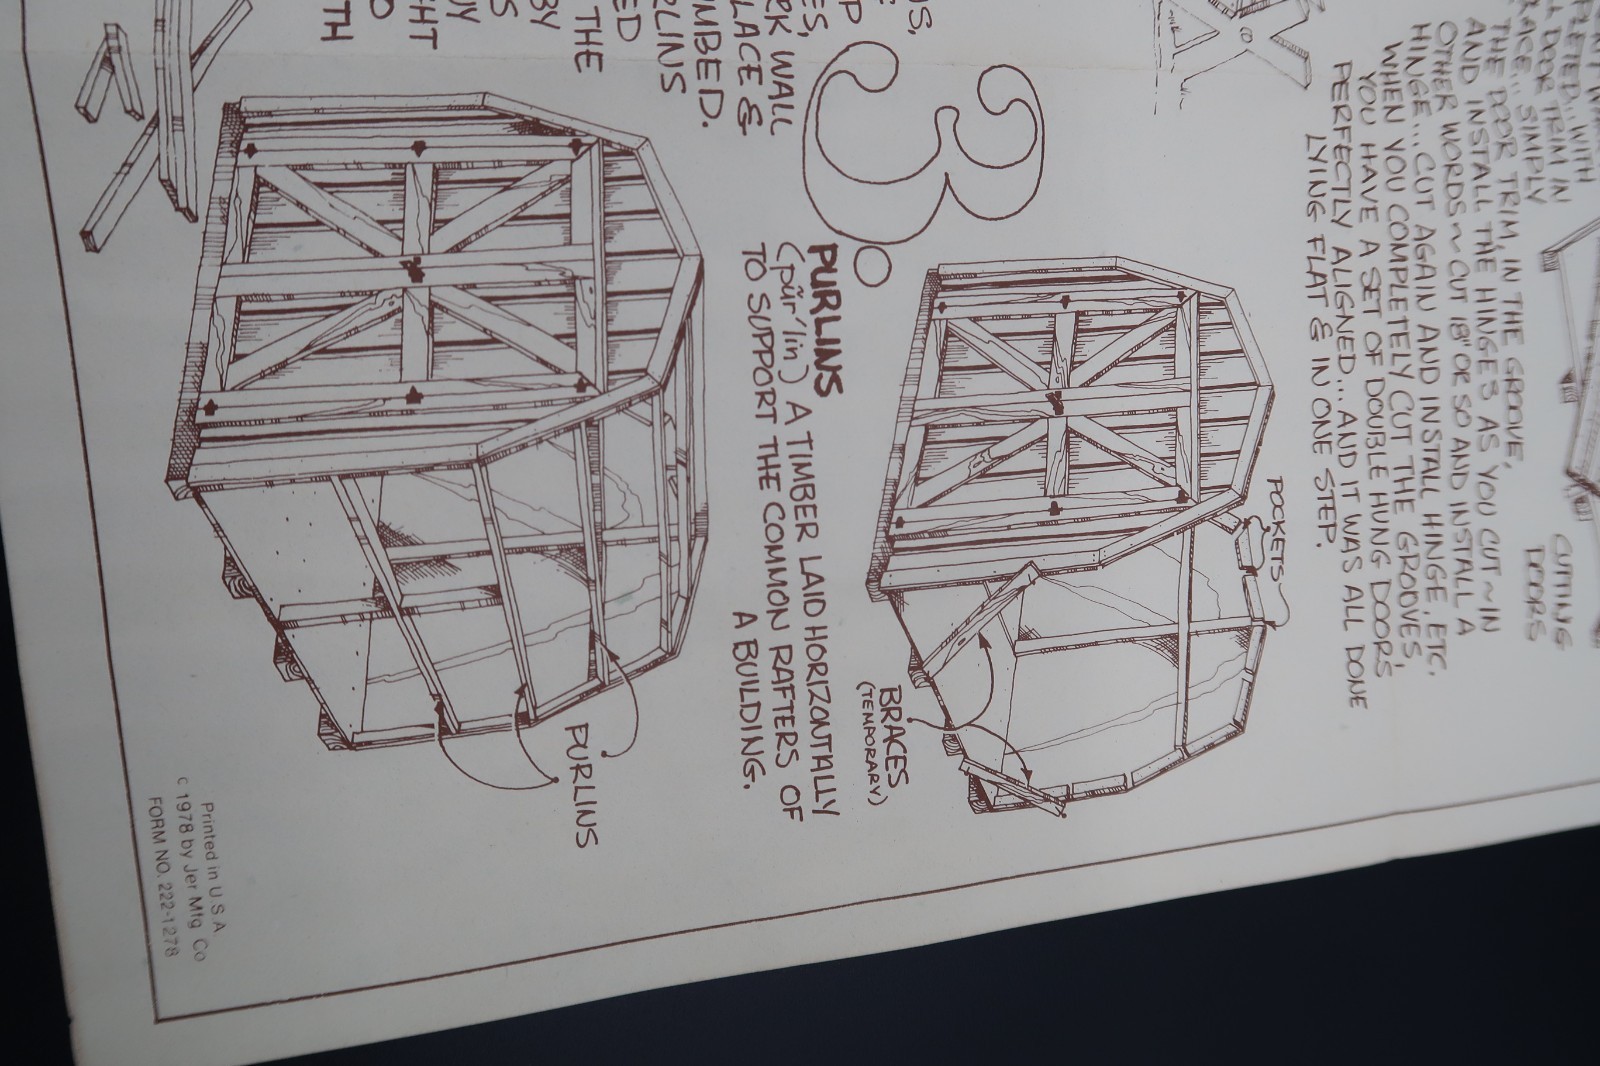 PLETED.. WITH
DOOR TRIM IN
SIMPLY
THE DOOR TRIM, IN THE GROOVE,
AND INSTALL THE HINGES AS YOU CUT ~ IN
OTHER WORDS ~ CUT 18" OR SO AND INSTALL A
HINGE... CUT AGAIN AND INSTALL HINGE, ETC.
WHEN YOU COMPLETELY CUT THE GROOVES,
YOU HAVE A SET OF DOUBLE HUNG DOORS
PERFECTLY ALIGNED... AND IT WAS ALL DONE
LYING FLAT & IN ONE STEP.
CUTTING
DOORS
POCKETS
BRACES
(TEMPORARY)
3.
WALL
PLACE &
THE
BY
PURLINS
(pŭr'lin) A TIMBER LAID HORIZONTALLY
TO SUPPORT THE COMMON RAFTERS OF
A BUILDING.
PURLINS
Printed in U.S.A.
c 1978 by Jer Mfg. Co
FORM NO. 222-1278